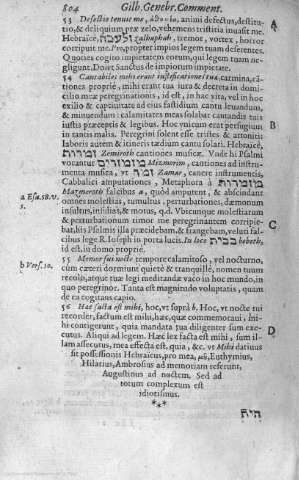 804 Gilb. Genebr. Comment.
53 Defectio tenuit me, animi defectus, destitutio,
& deliquium præ zelo, vehemens tristitia inuasit me.
Hebraicè, זלעפה zalhaphah, tremor, vortex, horror
corripuit me. Pro, propter impios legem tuam deserentes.
Quoties cogito impietatem eorum, qui legem tuam negligunt.
Dolet Sanctus de impiorum impietate.
54 Cantabiles mihi erant iustificationes tuæ. carmina, cātiones
propriè, mihi erant tua iura & decreta in domicilio
meæ peregrinationis, id est, in hac vita, vel in hoc
exilio & captiuitate ad eius fastidium cantu leuandum,
& minuendum: calamitates meas solabar cantandis tuis
iustis præceptis & legibus. Hoc vnicum erat perfugium
in tantis malis. Peregrini solent esse tristes & attoniti
laboris autem & itineris tædium cantu solari. Hebraicè,
זמרות Zemiroth cantiones musicæ. Vnde hi Psalmi
vocantur מזמורים Mazmorim, cantiones ad instrumenta
musica, vt זמר Zamar, canere instrumentis,
Cabbalici amputationes, Metaphora à מזמרות
Mazmeroth falcibus a, quòd amputent, & abscindant
omnes molestias, tumultus, perturbationes, dæmonum
insultus, insidias, & motus, q.d. Vbicunque molestiarum
& perturbationum incidebat peregrino me perturbabat,
iis Psalmis illa præcidebam, & frangebam, veluti falcibus
lege R. Ioseph in porta lucis. In loco בבית bebeth,
id est, in domo propriè.
a Esa. 18. v.
5.
55 Memor fui nocte tempore calamitoso, vel nocturno,
cùm cæteri dormiunt quietè & tranquillè, nomen tuum
recolo, atque tuæ legi meditandæ vaco in hoc mundo, in
quo peregrinor. Tanta est magnitudo voluptatis, quam
de ea cogitans capio.
b Vers. 10.
56 Hæc facta est mihi, hoc, vt suprà b. Hoc, vt nocte tui
recorder, factum est mihi, hæc, quæ commemoraui, mihi
contigerunt, quia mandata tua diligenter sum executus.
Aliqui ad legem. Hæc lex facta est mihi, sum illam
assecutus, mea effecta est. quia, &c. vt Mihi datiuus
sit possessionis Hebraicus, pro mea, Euthymius,
Hilarius, Ambrosius ad memoriam referunt,
Augustinus ad noctem. Sed ad
totum complexum est
idiotismus.
***
A
B
C
D